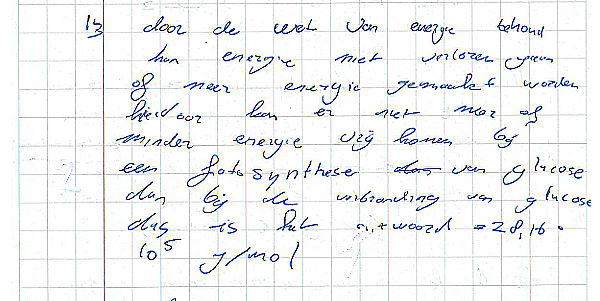 13 door de wet van energie behoud
kan energie niet verloren gaan
of meer energie gemaakt worden
hierdoor kan er niet meer of
minder energie vrij komen bij
een fotosynthese van glucose
dan bij de verbranding van glucose
dus is het antwoord = 28,16 .
10^5 J/mol